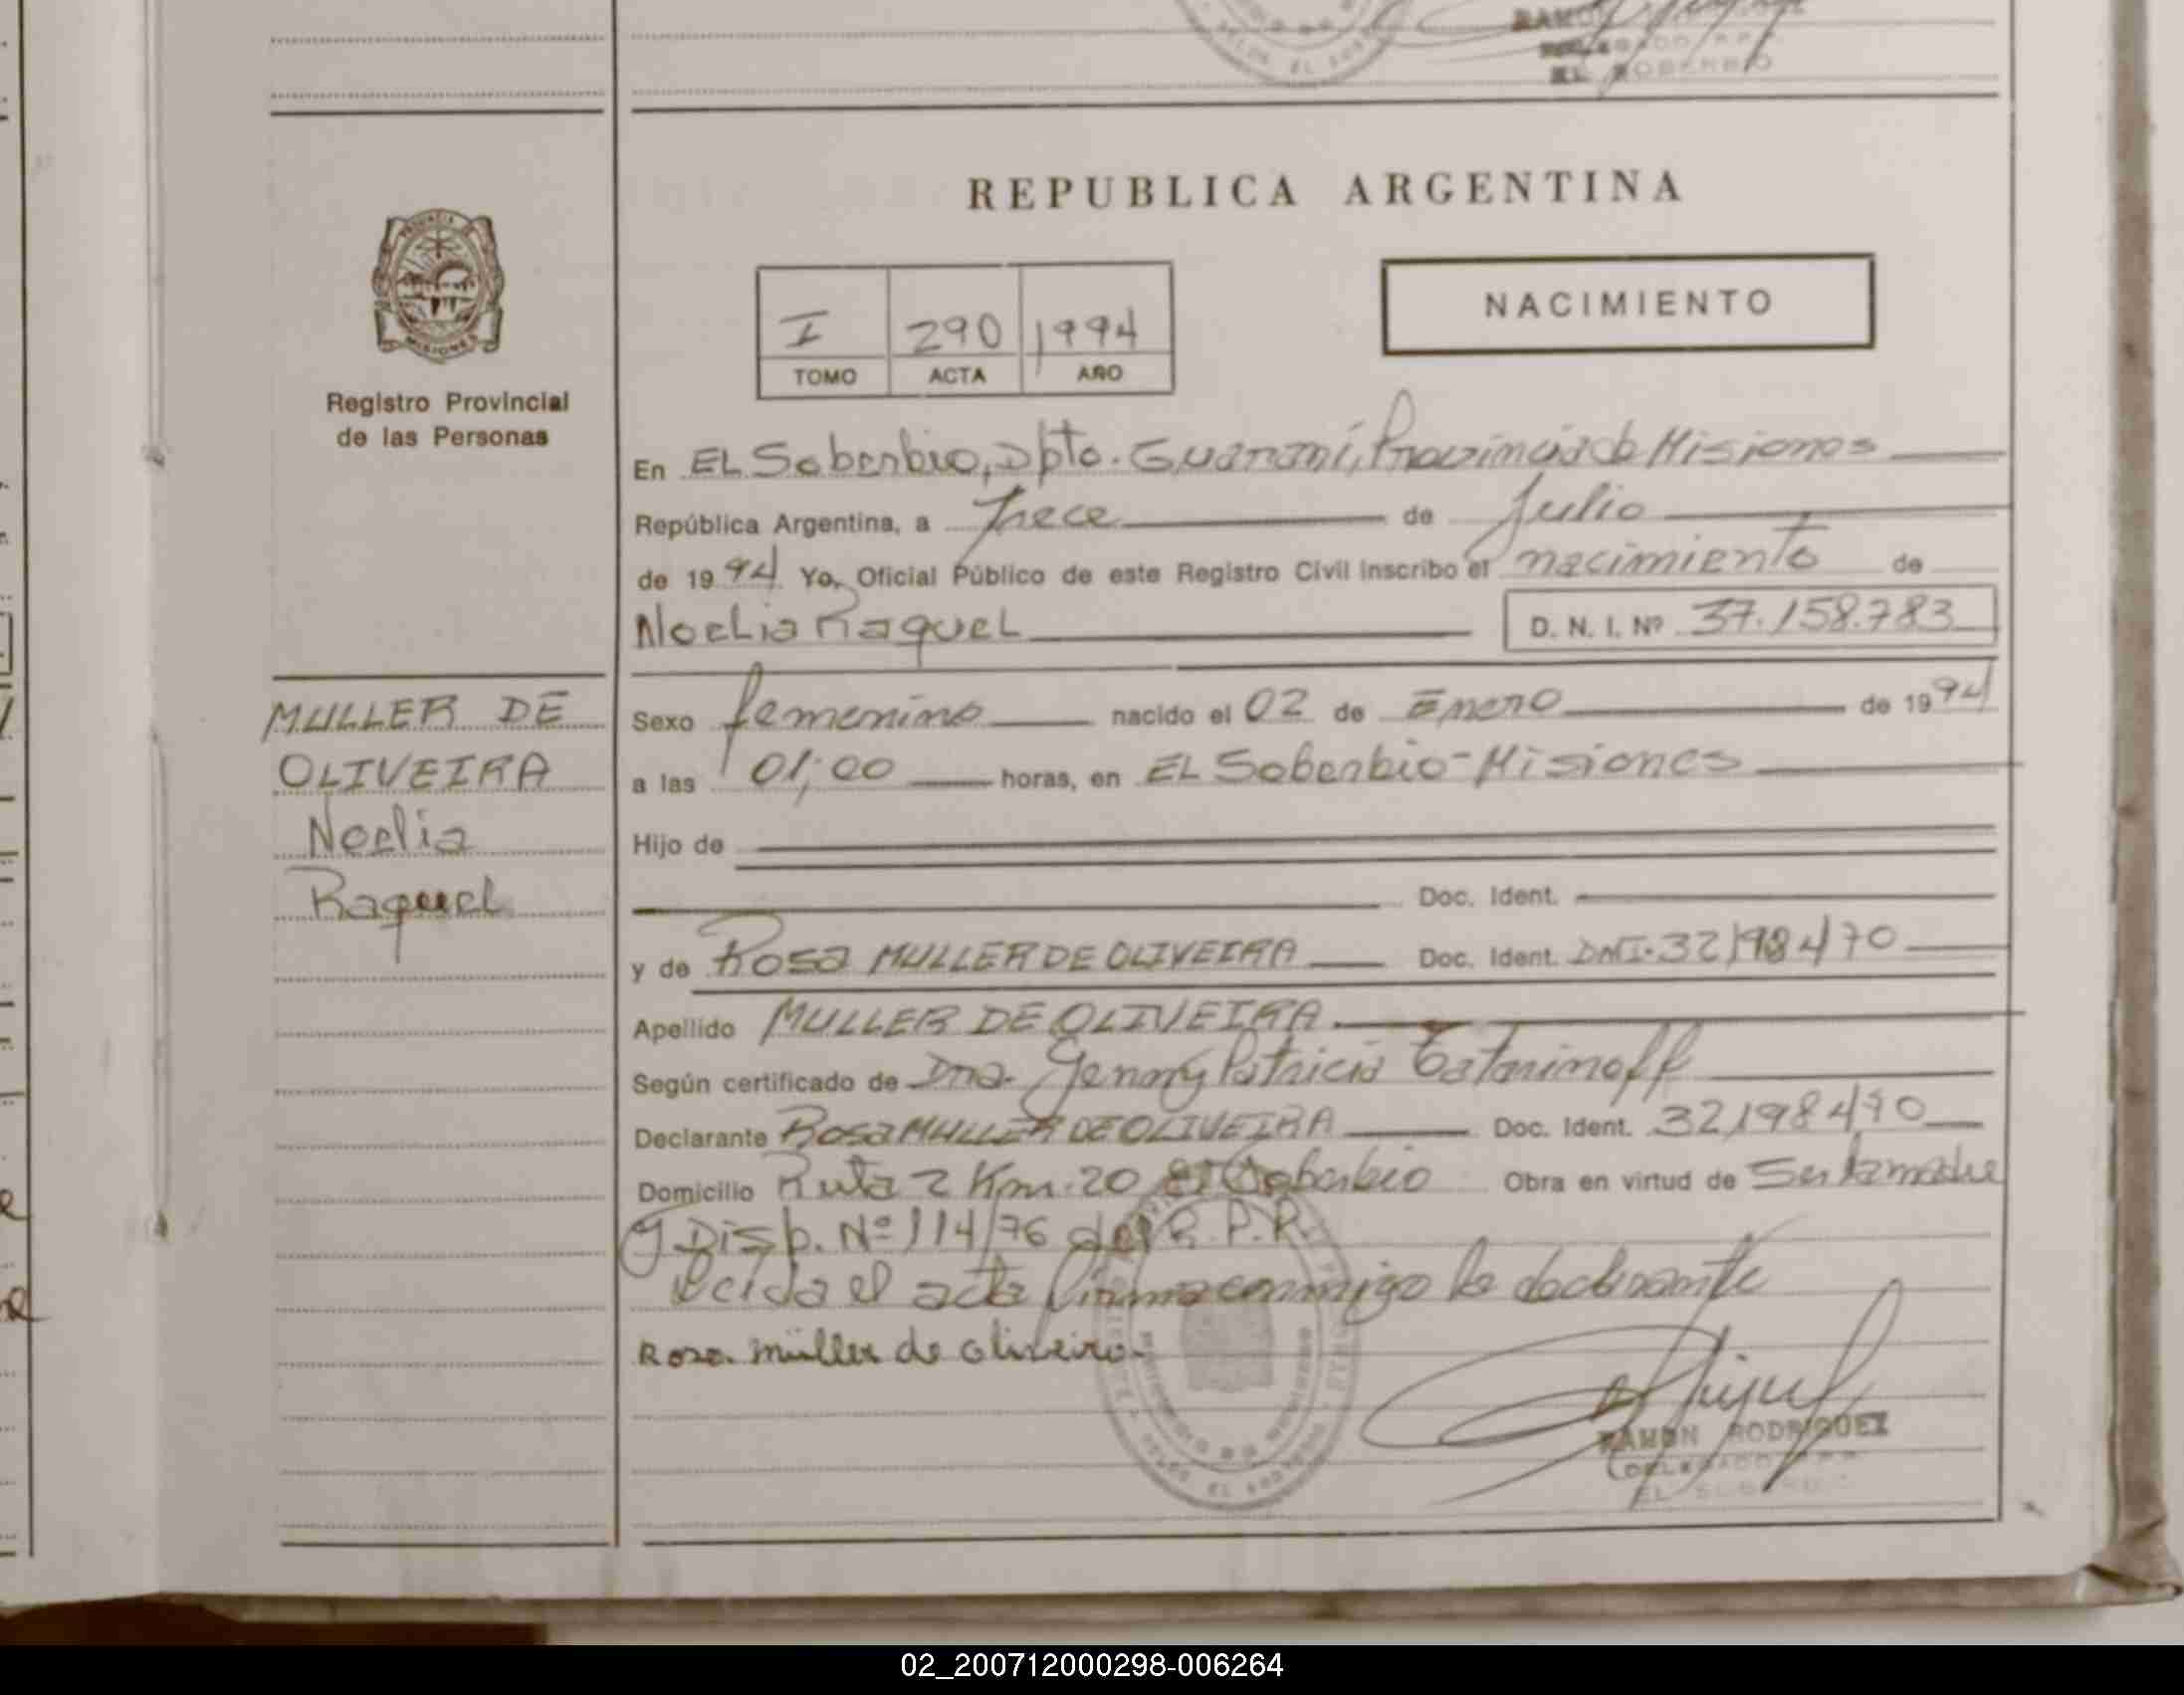 RAMON
EL SOBERBIO
REPUBLICA ARGENTINA
PROVINCIA DE
MISIONES
NACIMIENTO
I 290 1994
TOMO ACTA AÑO
Registro Provincial
de las Personas
En EL Soberbio, Dpto. Guaraní, Provincia de Misiones
República Argentina, a Trece de Julio
de 1994 Yo, Oficial Público de este Registro Civil inscribo el nacimiento de
Noelia Raquel D. N. I. Nº 37.158.783
MULLER DE
OLIVEIRA
Noelia
Raquel
Sexo femenino nacido el 02 de Enero de 1994
a las 01;00 horas, en EL Soberbio-Misiones
Hijo de
Doc. Ident.
y de Rosa MULLER DE OLIVEIRA Doc. Ident. DNI-32198470
Apellido MULLER DE OLIVEIRA.
Según certificado de Dna. Jenny Patricia Tatarinoff
Declarante Rosa MULLER DE OLIVEIRA Doc. Ident. 32198470
Domicilio Ruta 2 Km. 20 El Soberbio Obra en virtud de Ser la madre
y Disp. Nº 114/76 del R. P. P.
Leida el acta firma conmigo la declarante
Rosa müller de oliveira
RAMON RODRIGUEZ
DELEGADO
EL SOBERBIO
02_200712000298-006264